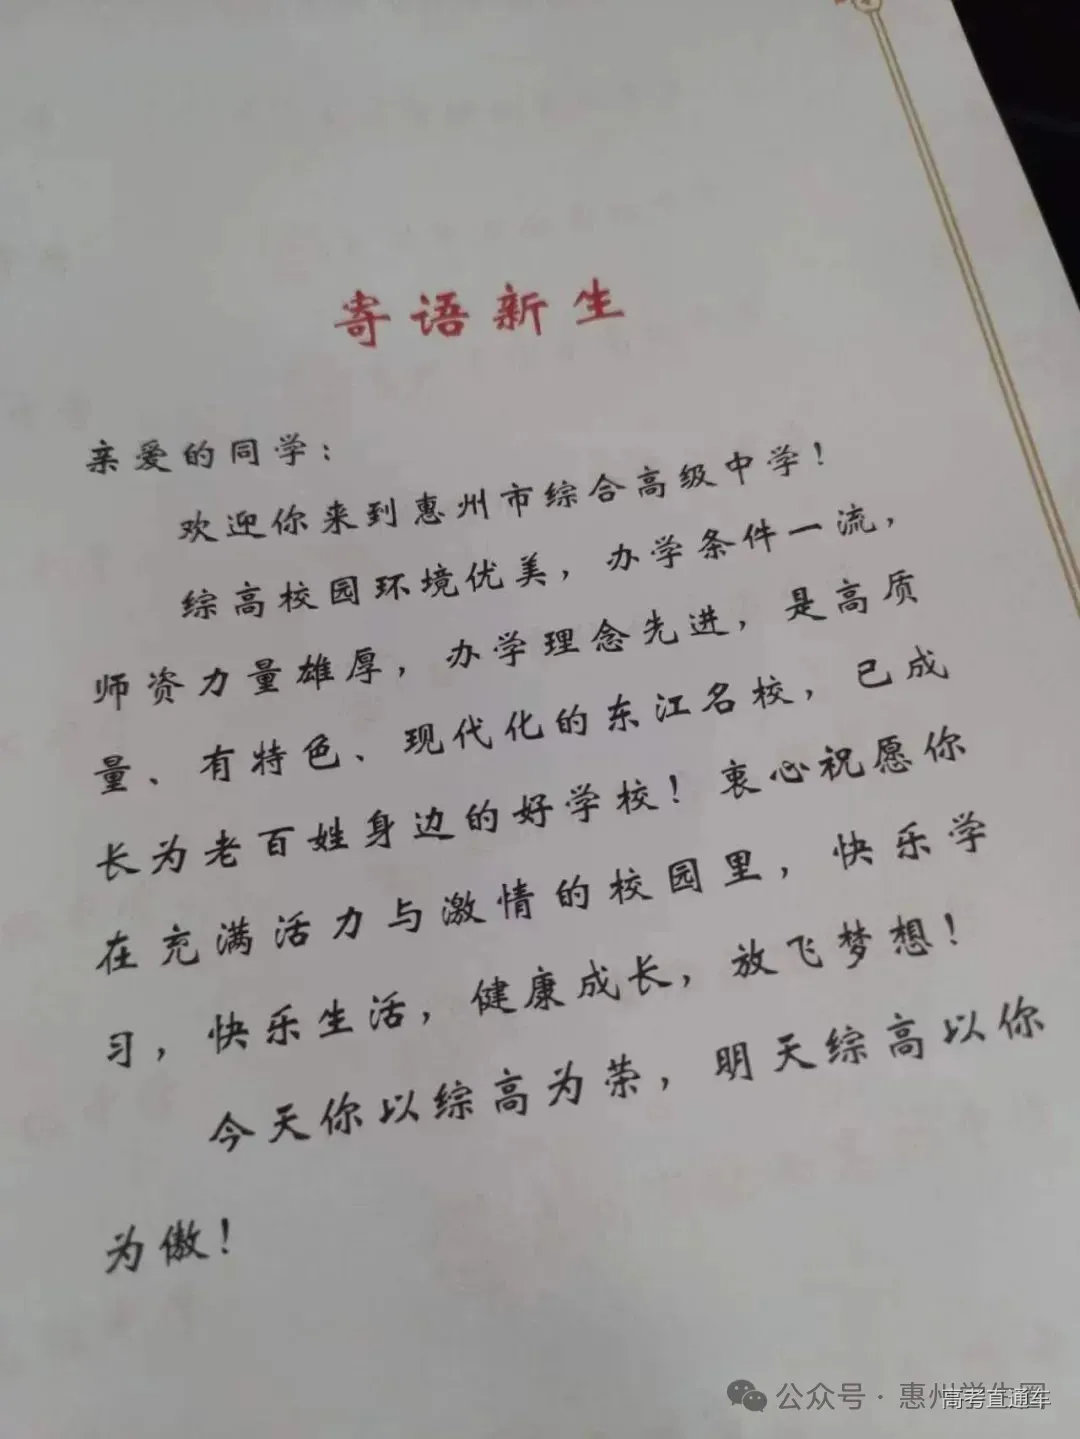 寄语新生
亲爱的同学：
欢迎你来到惠州市综合高级中学！
综高校园环境优美，办学条件一流，
师资力量雄厚，办学理念先进，是高质
量、有特色、现代化的东江名校，已成
长为老百姓身边的好学校！衷心祝愿你
在充满活力与激情的校园里，快乐学
习，快乐生活，健康成长，放飞梦想！
今天你以综高为荣，明天综高以你
为傲！
公众号·惠州学生圈
高考直通车